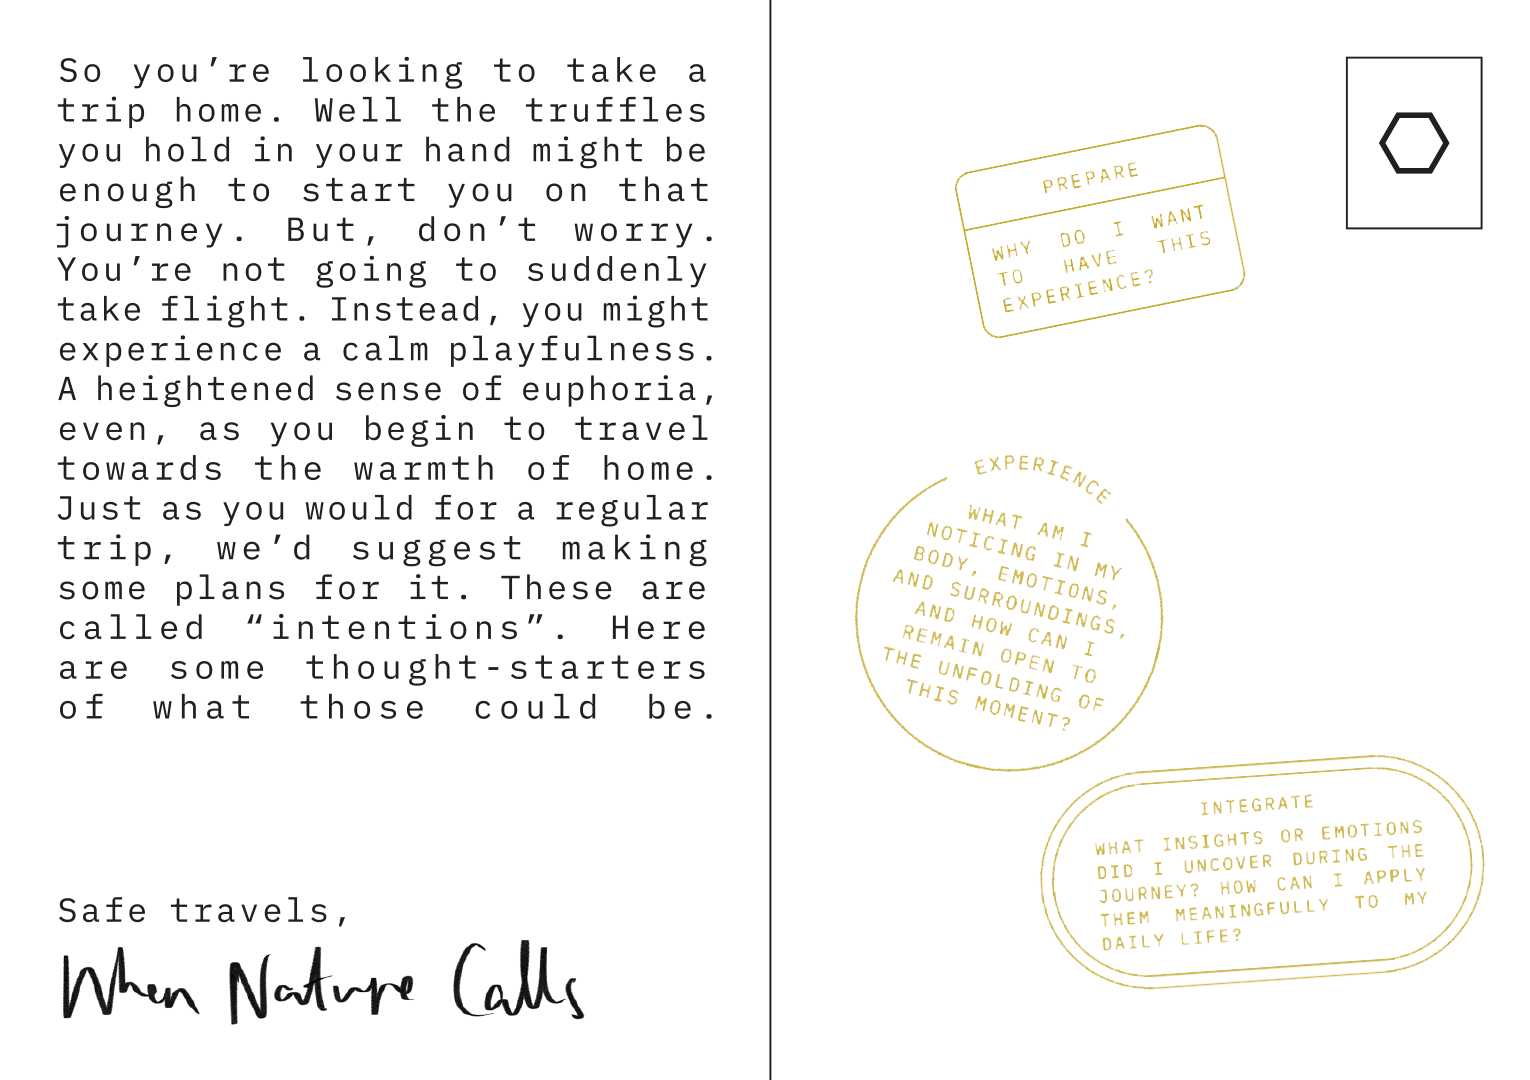 So you’re looking to take a
trip home. Well the truffles
you hold in your hand might be
enough to start you on that
journey. But, don’t worry.
You’re not going to suddenly
take flight. Instead, you might
experience a calm playfulness.
A heightened sense of euphoria,
even, as you begin to travel
towards the warmth of home.
Just as you would for a regular
trip, we’d suggest making
some plans for it. These are
called “intentions”. Here
are some thought-starters
of what those could be.
Safe travels,
When Nature Calls
PREPARE
WHY DO I WANT
TO HAVE THIS
EXPERIENCE?
EXPERIENCE
WHAT AM I
NOTICING IN MY
BODY, EMOTIONS,
AND SURROUNDINGS,
AND HOW CAN I
REMAIN OPEN TO
THE UNFOLDING OF
THIS MOMENT?
INTEGRATE
WHAT INSIGHTS OR EMOTIONS
DID I UNCOVER DURING THE
JOURNEY? HOW CAN I APPLY
THEM MEANINGFULLY TO MY
DAILY LIFE?